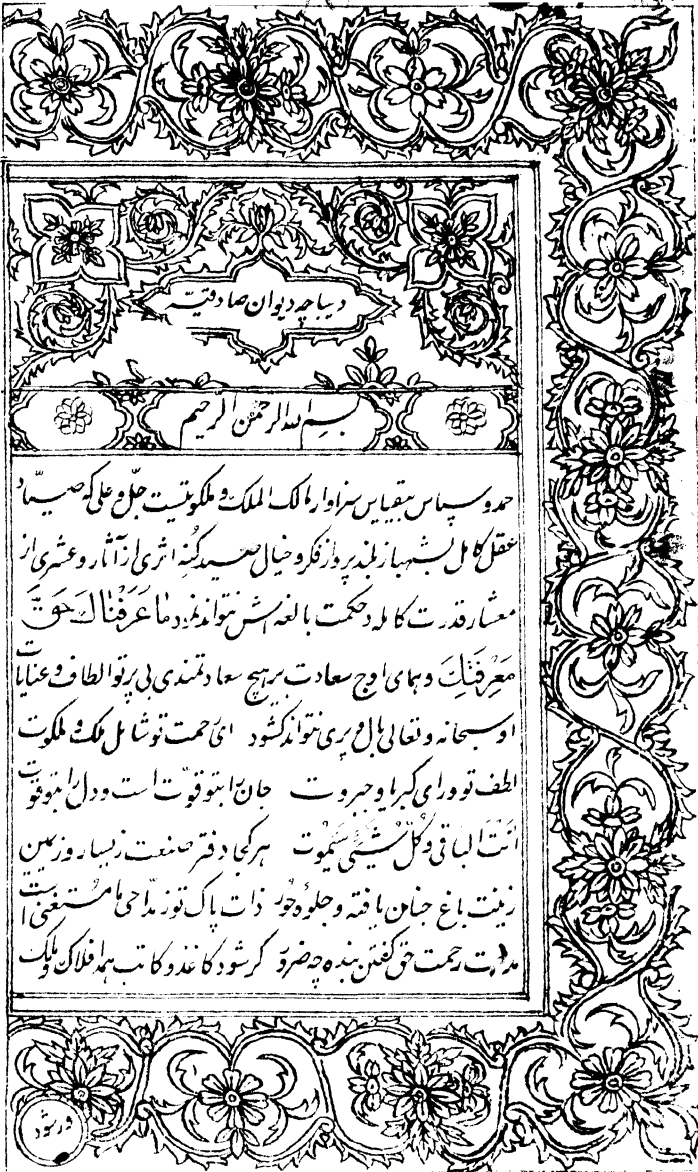 دیباچه دیوان صادقیه
بسم الله الرحمن الرحیم
حمد و سپاس بیقیاس سزاوار مالک الملک و ملکوتیست جل و علی که صیاد
عقل کامل بشهباز بلند پرداز فکر و خیال صید کُنه اثری از آثار و عشری از
معشار قدرت کامله و حکمت بالغه اش نتواند نمود مَا عَرَفْنَاكَ حَقَّ
مَعْرِفَتِكَ و همای اوج سعادت بر هیچ سعادتمندی بی پرتو الطاف و عنایات
او سبحانه و تعالی بال و پری نتواند کشود ای رحمت تو شامل ملک و ملکوت
لطف تو ورای کبریا و جبروت جان را بتو قوّت است و دل را بتو قوت
انت الباقی و کلّ شیئی سیموت هر کجا دفتر صنعت ز یسار و ز یمین
زینت باغ جنان یافته و جلوه حور ذات پاک تو ز مدّاحی ما مستغنی است
مدحت رحمت حق گفتن بنده چه ضرور گر شود کاغذ و کاتب همه افلاک و ملک